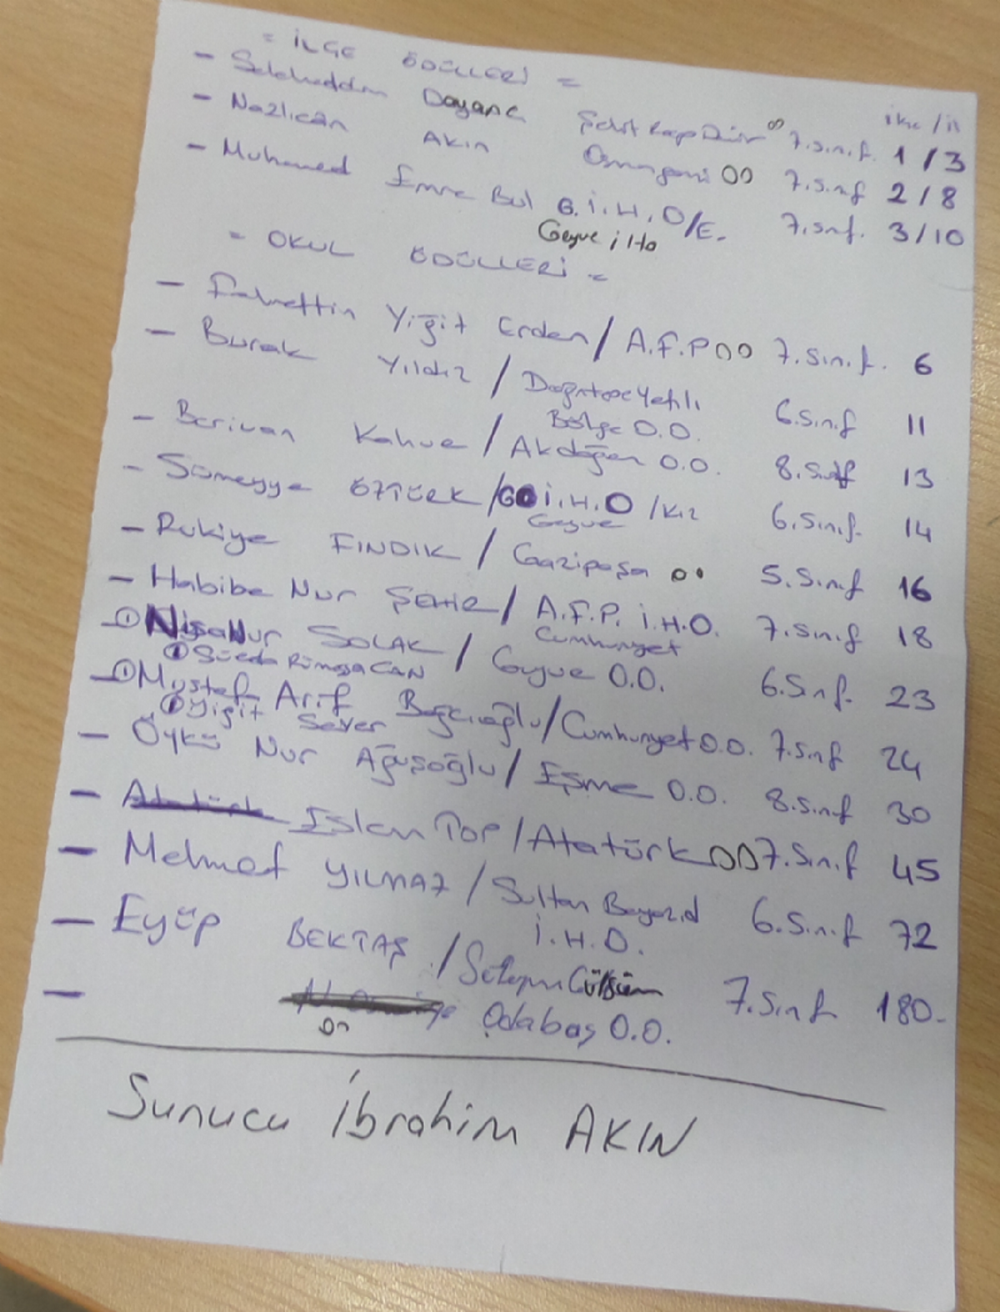 = İLÇE ÖDÜLLERİ =
ilçe / il
- Selahaddin Dayanç Şehit OO 7.sınıf. 1 / 3
- Nazlıcan Akın Osmangazi OO 7.sınıf 2 / 8
- Muhamed Emre Bul G.İ.H.O/E. 7.sınıf. 3/10
Geyve ilHo
= OKUL ÖDÜLLERİ =
- Fahrettin Yiğit Erden / A.F.P OO 7.sınıf. 6
- Burak Yıldız / Doğantepe Yetili 6.sınıf 11
Bölge O.O.
- Berivan Kahve / Akdoğan O.O. 8.sınıf 13
- Sümeyye ÖZTÜRK / G İ.H.O / Kız 6.sınıf. 14
Geyve
- Rukiye FINDIK / Gazipaşa OO 5.sınıf 16
- Habibe Nur ŞAHİN / A.F.P. İ.H.O. 7.sınıf 18
Cumhuriyet
① NisaNur SOLAK / Geyve O.O. 6.sınıf. 23
① Süeda Rümeysa CAN
① Mustafa Arif Bağcıoğlu / Cumhuriyet O.O. 7.sınıf 24
② Yiğit Sever
- Öykü Nur Ağuşoğlu / Eşme O.O. 8.sınıf 30
- Atatürk Islam Top / Atatürk OO 7.sınıf 45
- Mehmet YILMAZ / Sultan Beyazıd 6.sınıf 72
İ.H.O.
- Eyüp BEKTAŞ / Süleyman Gülsüm 7.sınıf 180.
-
Odabaş O.O.
Sunucu İbrahim AKIN